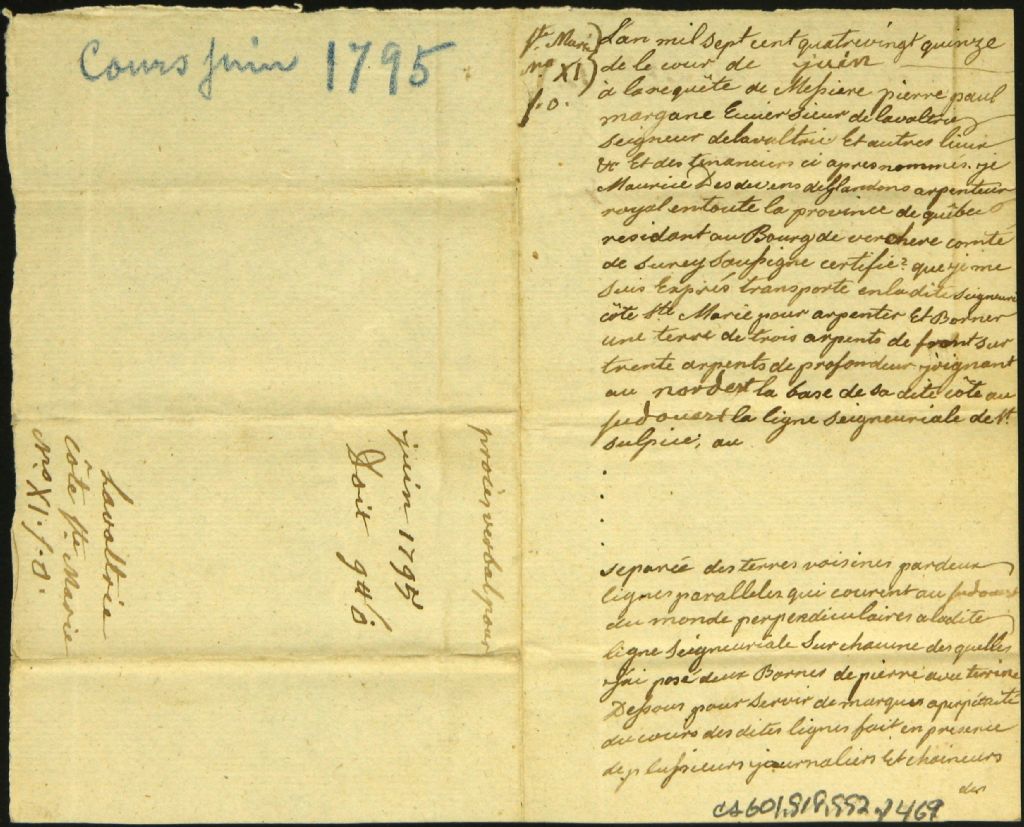 Cours juin 1795
procès verbal pour
juin 1795
Doit
Lavaltrie
côte Ste. Marie
No. XI. f. 0.
Ste. Marie
No. XI
f. o.
L'an mil sept cent quatrevingt quinze
de le cour de juin
a la requête de Messiere pierre paul
margane Ecuier sieur de lavaltrie
seigneur delavaltrie Et autres lieux
&c Et des tenanciers ci apres nommés. je
Maurice Desdevens deglandons arpenteur
royal entoute la province de quêbec
residant au Bourg de verchere comté
de surey soussigne certifie? que je me
suis Exprés transporte enladite seigneuri
côte Ste Marie pour arpenter Et Borner
une terre de trois arpents de front sur
trente arpents de profondeur joignant
au nordest la base de sa dite côte au
sudouest la ligne seigneuriale de St.
sulpice, au
separée des terres voisines pardeux
lignes paralleles qui courent au sudouest
du monde perpendiculaires aladite
ligne seigneuriale sur chacune des quelles
J'ai posé deux Bornes de pierre avec terrine
Dessous pour servir de marques aperpétuité
du cours des dites lignes fait en presence
de plusieurs journaliers Et chaineurs
des
CA601,S19,SS2,P469